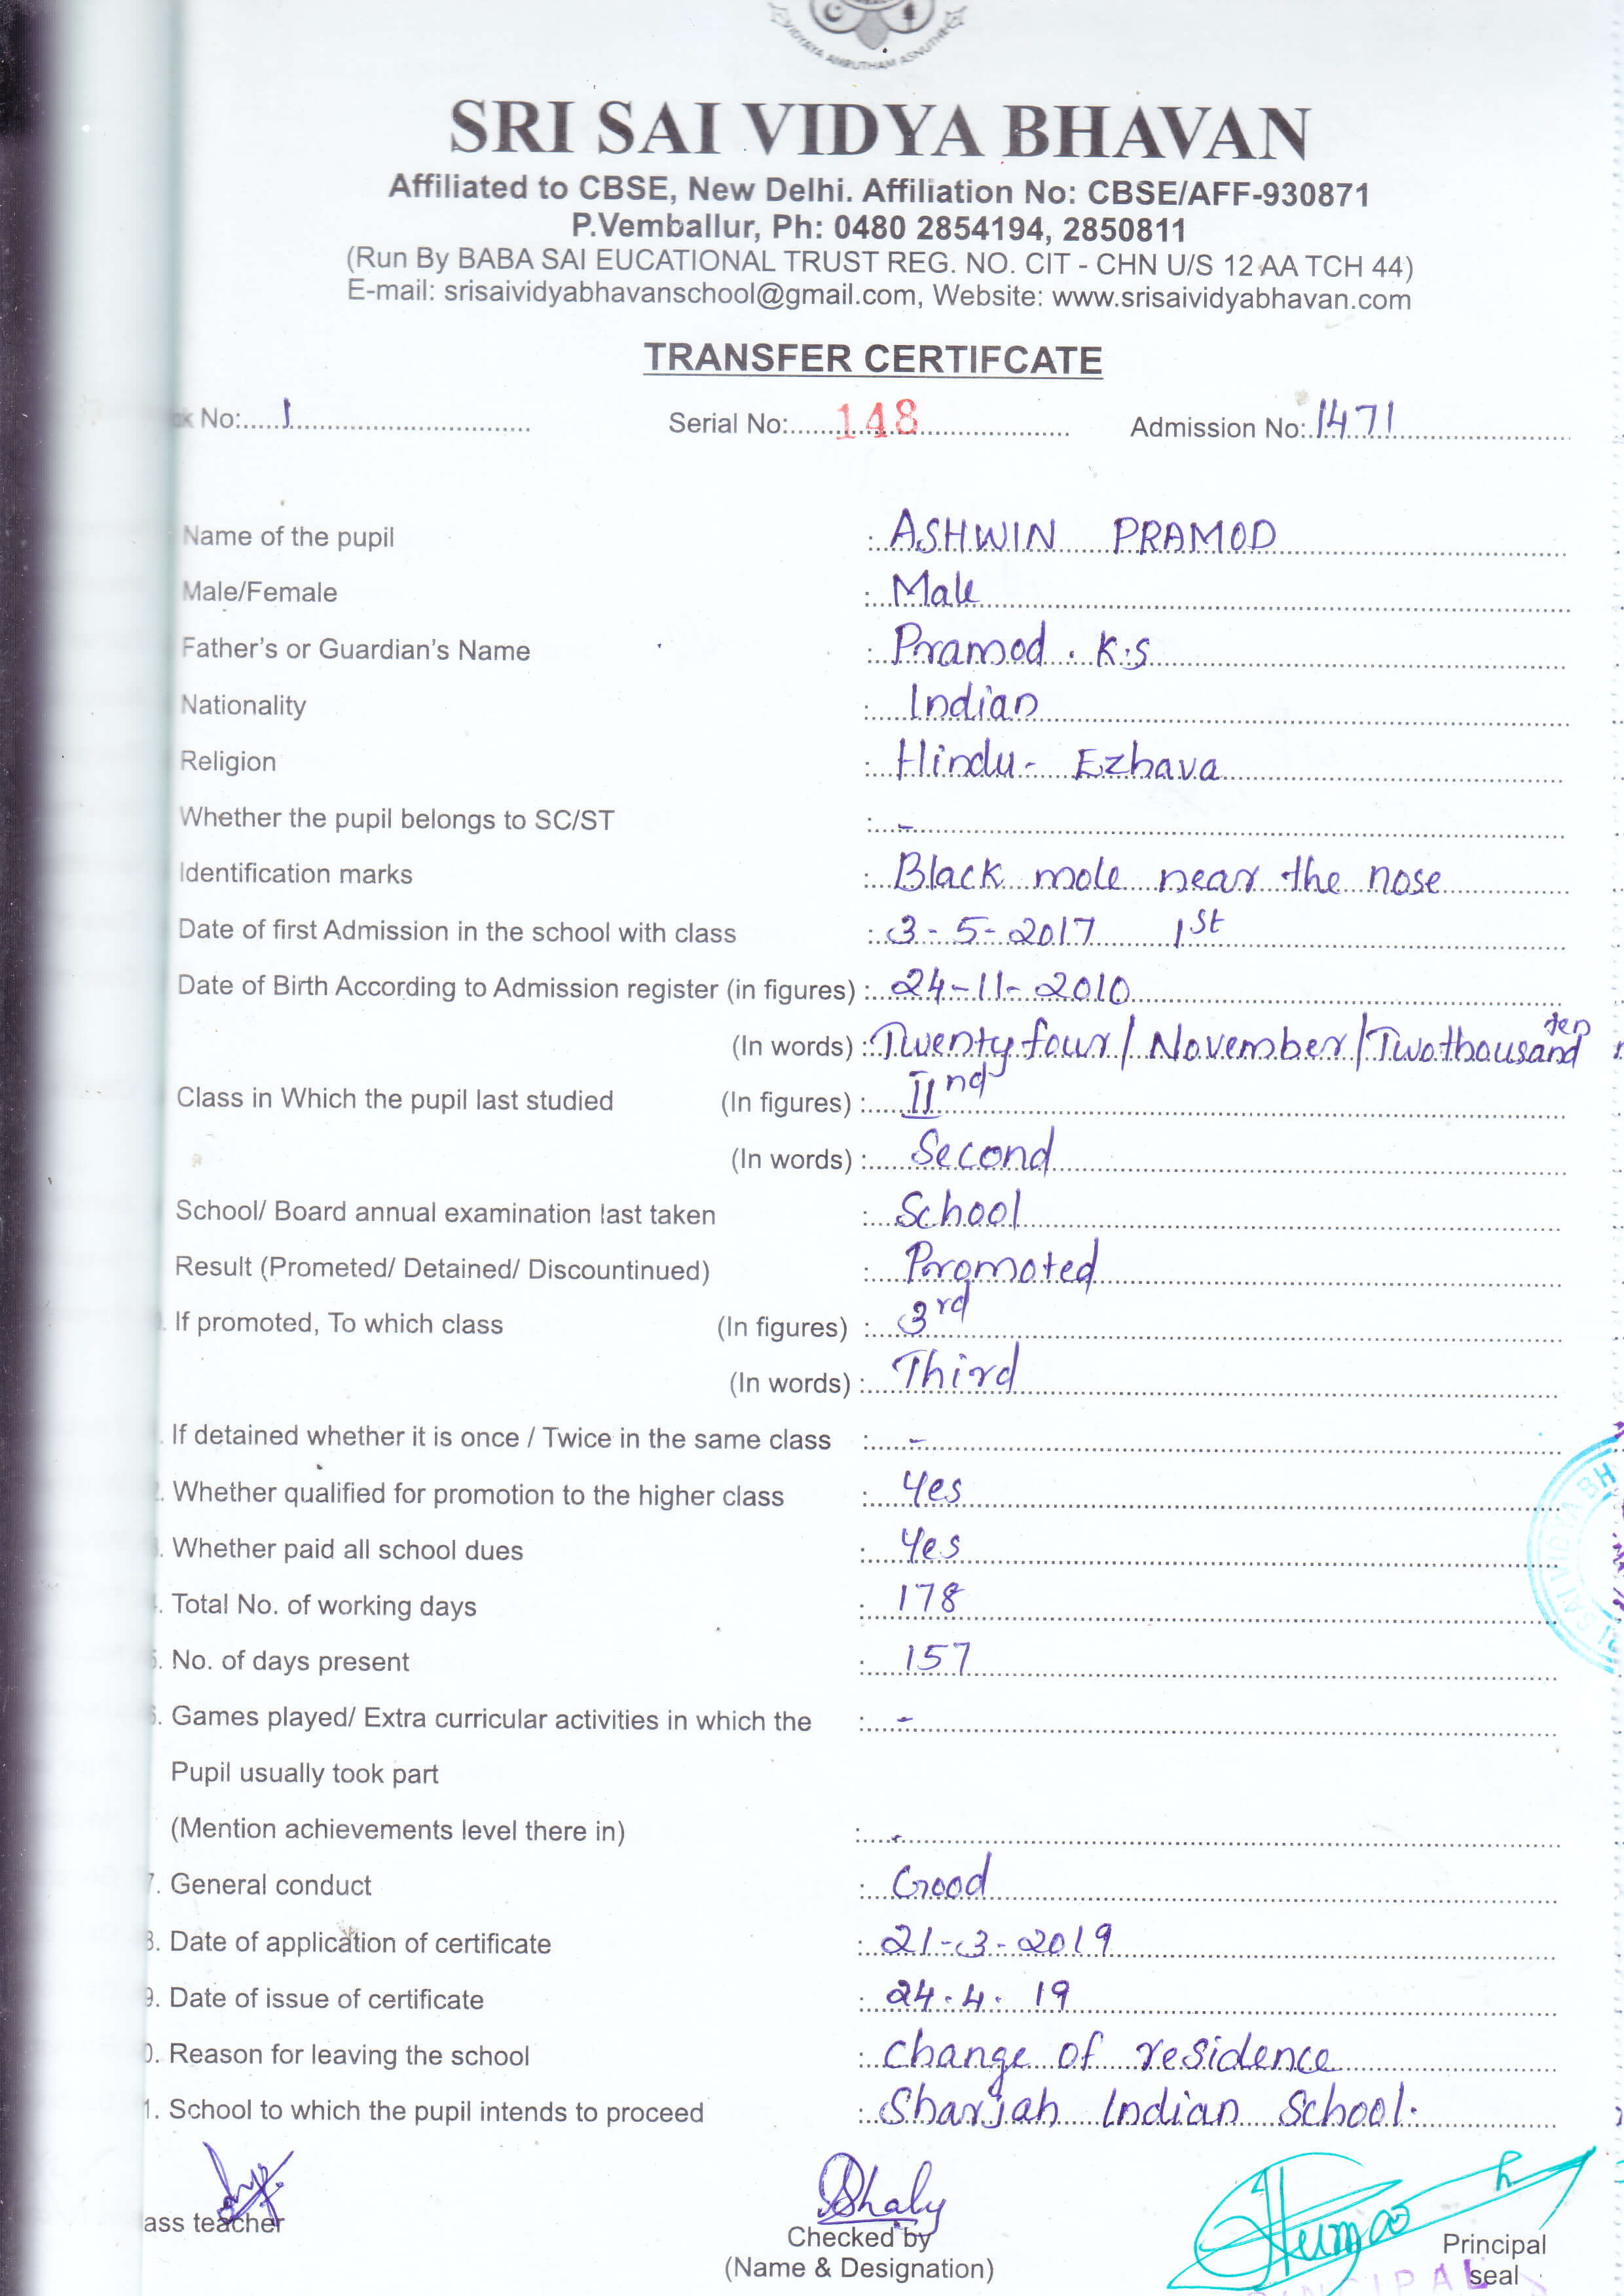 VIDYAYA AMRUTHAM ASNUTHE
SRI SAI VIDYA BHAVAN
Affiliated to CBSE, New Delhi. Affiliation No: CBSE/AFF-930871
P.Vemballur, Ph: 0480 2854194, 2850811
(Run By BABA SAI EUCATIONAL TRUST REG. NO. CIT - CHN U/S 12 AA TCH 44)
E-mail: srisaividyabhavanschool@gmail.com, Website: www.srisaividyabhavan.com
TRANSFER CERTIFCATE
No: 1 Serial No: 148 Admission No: 1471
Name of the pupil : ASHWIN PRAMOD
Male/Female : Male
Father's or Guardian's Name : Pramod . K.S
Nationality : Indian
Religion : Hindu - Ezhava
Whether the pupil belongs to SC/ST : -
Identification marks : Black mole near the nose
Date of first Admission in the school with class : 3-5-2017 1st
Date of Birth According to Admission register (in figures) : 24-11-2010
(In words) : Twenty four / November / Two thousand ten
Class in Which the pupil last studied (In figures) : IInd
(In words) : Second
School/ Board annual examination last taken : School
Result (Prometed/ Detained/ Discountinued) : Promoted
If promoted, To which class (In figures) : 3rd
(In words) : Third
If detained whether it is once / Twice in the same class : -
Whether qualified for promotion to the higher class : Yes
Whether paid all school dues : Yes
Total No. of working days : 178
No. of days present : 157
Games played/ Extra curricular activities in which the : -
Pupil usually took part
(Mention achievements level there in) : -
7. General conduct : Good
8. Date of application of certificate : 21-3-2019
9. Date of issue of certificate : 24.4.19
0. Reason for leaving the school : Change of residence
1. School to which the pupil intends to proceed : Sharjah Indian School.
SAI VIDYA BH
ass teacher
Shaly
Checked by
(Name & Designation)
Principal
seal